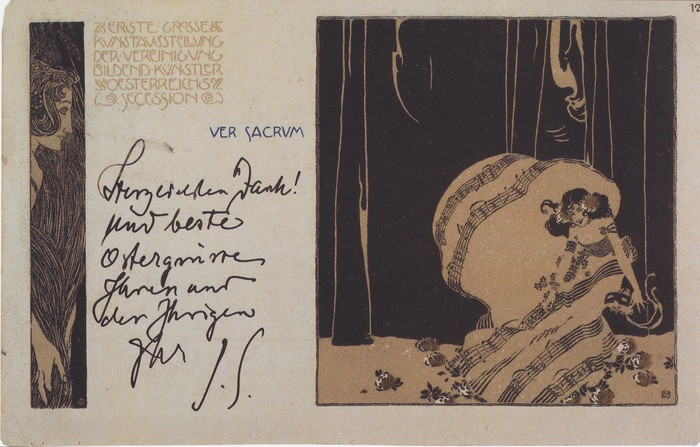 ERSTE GROSSE
KUNSTAUSSTELLUNG
DER VEREINIGUNG
BILDEND KÜNSTLER
OESTERREICHS
SECESSION
VER SACRVM
12
Herzlichen Dank!
und beste
Ostergrüsse
Ihnen und
den Ihrigen
Ihr J.S.